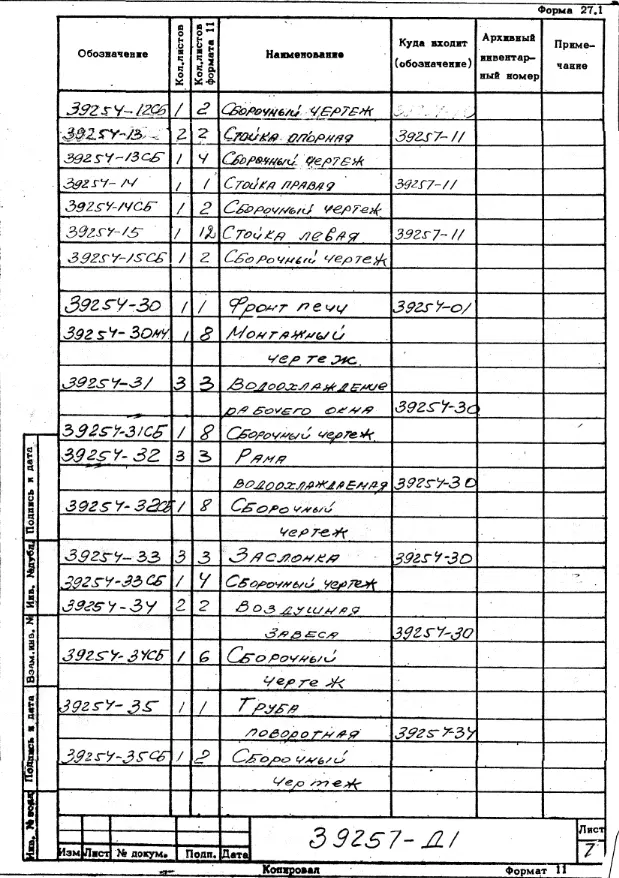 Форма 27.1
Обозначение Кол.листов Кол.листов формата 11 Наименование Куда входит (обозначение) Архивный инвентарный номер Примечание
39254-12СБ 1 2 Сборочный чертеж
39254-13 2 2 Стойка опорная 39257-11
39254-13СБ 1 4 Сборочный чертеж
39254-14 1 1 Стойка правая 39257-11
39254-14СБ 1 2 Сборочный чертеж
39254-15 1 12 Стойка левая 39257-11
39254-15СБ 1 2 Сборочный чертеж
39254-30 1 1 Фронт печи 39254-01
39254-30МЧ 1 8 Монтажный
чертеж.
39254-31 3 3 Водоохлаждение
рабочего окна 39254-30
39254-31СБ 1 8 Сборочный чертеж
39254-32 3 3 Рама
водоохлаждаемая 39254-30
39254-32СБ 1 8 Сборочный
чертеж
39254-33 3 3 Заслонка 39254-30
39254-33СБ 1 4 Сборочный чертеж
39254-34 2 2 Воздушная
завеса 39254-30
39254-34СБ 1 6 Сборочный
чертеж
39254-35 1 1 Труба
поворотная 39254-34
39254-35СБ 1 2 Сборочный
чертеж
Инв. № подл Подпись и дата Взам.инв. № Инв. №дубл. Подпись и дата
39257-Д1
Лист
7
Изм Лист № докум. Подп. Дата
Копировал Формат 11